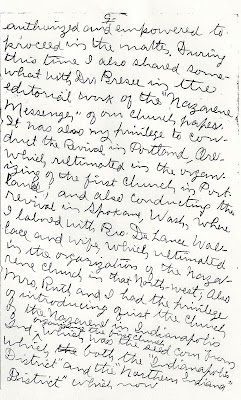 5
authorized and empowered to
proceed in the matter. During
this time I also shared some-
what with Dr. Bresee in the
editorial work of the "Nazarene
Messenger," of our church paper.
It was also my privilege to con-
duct the Revival in Portland, Ore.
which ultimated in the organ-
izing of the first church in Port-
land; and also conducting the
revival in Spokane, Wash, where
I labored with Bro. De Lance Wal-
lace and wife, which ultimated
in the organization of the Naza-
rene Church in that North-west; Also
Mrs. Ruth and I had the privilege
of introducing first the Church
of the Nazarene in Indianapolis
organizing our first church
Ind, which was the seed corn from
which both the "Indianapolis
District" and the "Northern Indiana
District" which now